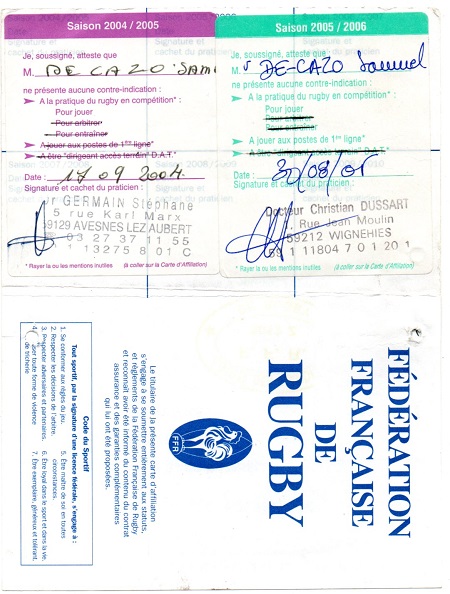 Saison 2004 / 2005
Je, soussigné, atteste que
M. DE CAZO SAM
ne présente aucune contre-indication :
A la pratique du rugby en compétition* :
Pour jouer
Pour arbitrer
Pour entraîner
A jouer aux postes de 1ère ligne*
A être "dirigeant accès terrain" D.A.T.*
Date : 17 09 2004
Signature et cachet du praticien :
GERMAIN Stéphane
5 rue Karl Marx
59129 AVESNES LEZ AUBERT
03 27 37 11 55
1 13275 8 01 C
* Rayer la ou les mentions inutiles (à coller sur la Carte d'Affiliation)
Saison 2005 / 2006
Je, soussigné, atteste que
M. DE-CAZO Samuel
ne présente aucune contre-indication :
A la pratique du rugby en compétition* :
Pour jouer
Pour arbitrer
Pour entraîner
A jouer aux postes de 1ère ligne*
A être "dirigeant accès terrain" D.A.T.*
Date : 30/08/05
Signature et cachet du praticien :
Docteur Christian DUSSART
Rue Jean Moulin
59212 WIGNEHIES
59 1 11804 7 0 1 20 1
* Rayer la ou les mentions inutiles (à coller sur la Carte d'Affiliation)
FÉDÉRATION
FRANÇAISE
DE
RUGBY
FFR
Le titulaire de la présente carte d'affiliation
s'engage à se soumettre entièrement aux statuts,
et règlements de la Fédération Française de Rugby
et reconnaît avoir été informé du contenu du contrat
assurance et des garanties complémentaires
qui lui ont été proposées.
Code du Sportif
Tout sportif, par la signature d'une licence fédérale, s'engage à :
1. Se conformer aux règles du jeu.
2. Respecter les décisions de l'arbitre.
3. Respecter adversaires et partenaires.
4. toute forme de violence
de tricherie
5. Être maître de soi en toutes
circonstances.
6. Être loyal dans le sport et dans la vie.
7. Être exemplaire, généreux et tolérant.